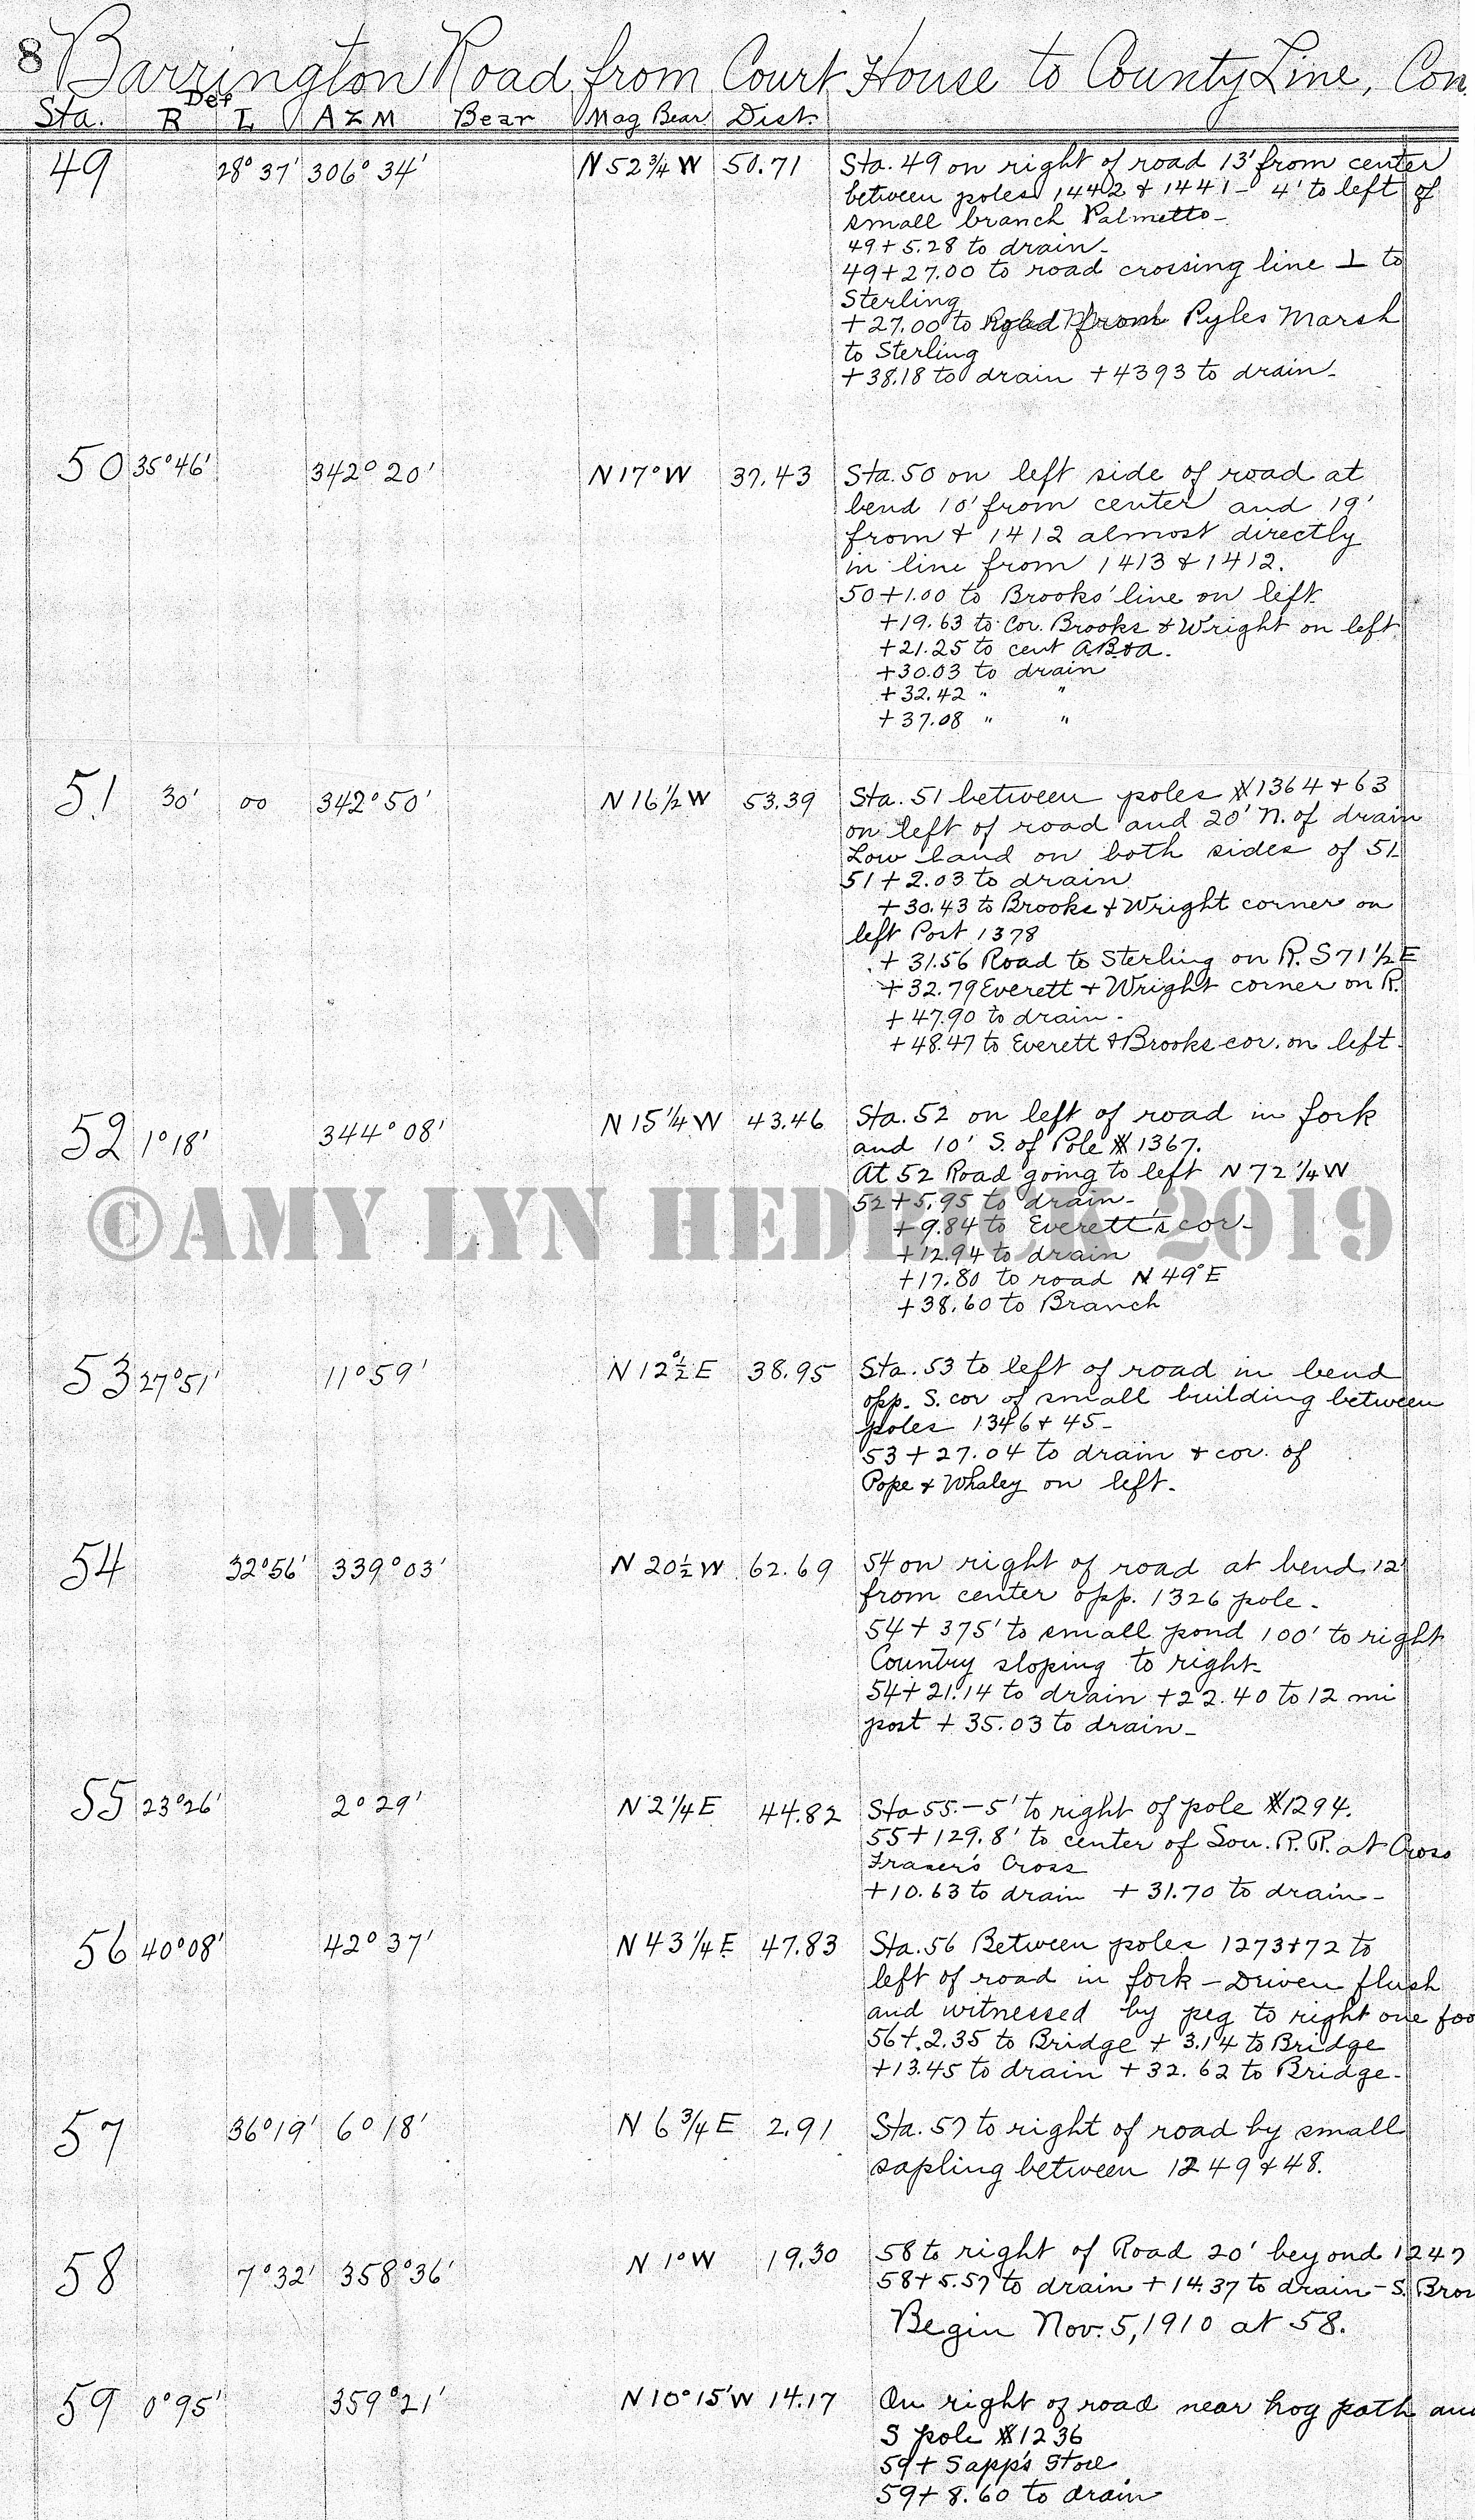 8 Barrington Road from Court House to County Line, Con.
Sta. R Def L AZM Bear Mag Bear Dist.
49 28° 37' 306° 34' N 52 3/4 W 50.71 Sta. 49 on right of road 13' from center
between poles 1442 & 1441 - 4' to left of
small branch Palmetto -
49 + 5.28 to drain -
49 + 27.00 to road crossing line ⊥ to
Sterling
+ 27.00 to from Pyles Marsh
to Sterling
+ 38.18 to drain + 4393 to drain -
50 35° 46' 342° 20' N 17° W 37.43 Sta. 50 on left side of road at
bend 10' from center and 19'
from + 1412 almost directly
in line from 1413 & 1412.
50 + 1.00 to Brooks' line on left
+ 19.63 to Cor. Brooks & Wright on left
+ 21.25 to cent AB&A.
+ 30.03 to drain
+ 32.42 " "
+ 37.08 " "
51 30' 00 342° 50' N 16 1/2 W 53.39 Sta. 51 between poles # 1364 + 63
on left of road and 20' N. of drain
Low land on both sides of 51
51 + 2.03 to drain
+ 30.43 to Brooks & Wright corner on
left Post 1378
+ 31.56 Road to Sterling on R. S 71 1/2 E
+ 32.79 Everett & Wright corner on R.
+ 47.90 to drain -
+ 48.47 to Everett & Brooks cor. on left.
52 1° 18' 344° 08' N 15 1/4 W 43.46 Sta. 52 on left of road in fork
and 10' S. of Pole # 1367.
At 52 Road going to left N 72 1/4 W
52 + 5.95 to drain -
©AMY LYN HEDRICK 2019
+ 9.84 to Everett's cor -
+ 12.94 to drain
+ 17.80 to road N 49° E
+ 38.60 to Branch
53 27° 51' 11° 59' N 12° 1/2 E 38.95 Sta. 53 to left of road in bend
opp. S. cor of small building between
poles 1346 + 45 -
53 + 27.04 to drain & cor. of
Pope & Whaley on left.
54 32° 56' 339° 03' N 20 1/2 W 62.69 54 on right of road at bend 12'
from center opp. 1326 pole -
54 + 375' to small pond 100' to right
Country sloping to right -
54 + 21.14 to drain + 22.40 to 12 mi
post + 35.03 to drain -
55 23° 26' 2° 29' N 2 1/4 E 44.82 Sta 55. - 5' to right of pole # 1294.
55 + 129.8' to center of Sou. R.R. at Cross
Fraser's Cross
+ 10.63 to drain + 31.70 to drain -
56 40° 08' 42° 37' N 43 1/4 E 47.83 Sta. 56 Between poles 1273 + 72 to
left of road in fork - Driven flush
and witnessed by peg to right one foo
56 + 2.35 to Bridge + 3.14 to Bridge
+ 13.45 to drain + 32.62 to Bridge -
57 36° 19' 6° 18' N 6 3/4 E 2.91 Sta. 57 to right of road by small
sapling between 1249 & 48.
58 7° 32' 358° 36' N 1° W 19.30 58 to right of Road 20' beyond 1247
58 + 5.57 to drain + 14.37 to drain - S.
Begin Nov. 5, 1910 at 58.
59 0° 95' 359° 21' N 10° 15' W 14.17 On right of road near hog path
S pole # 1236
59 + Sapp's Store
59 + 8.60 to drain